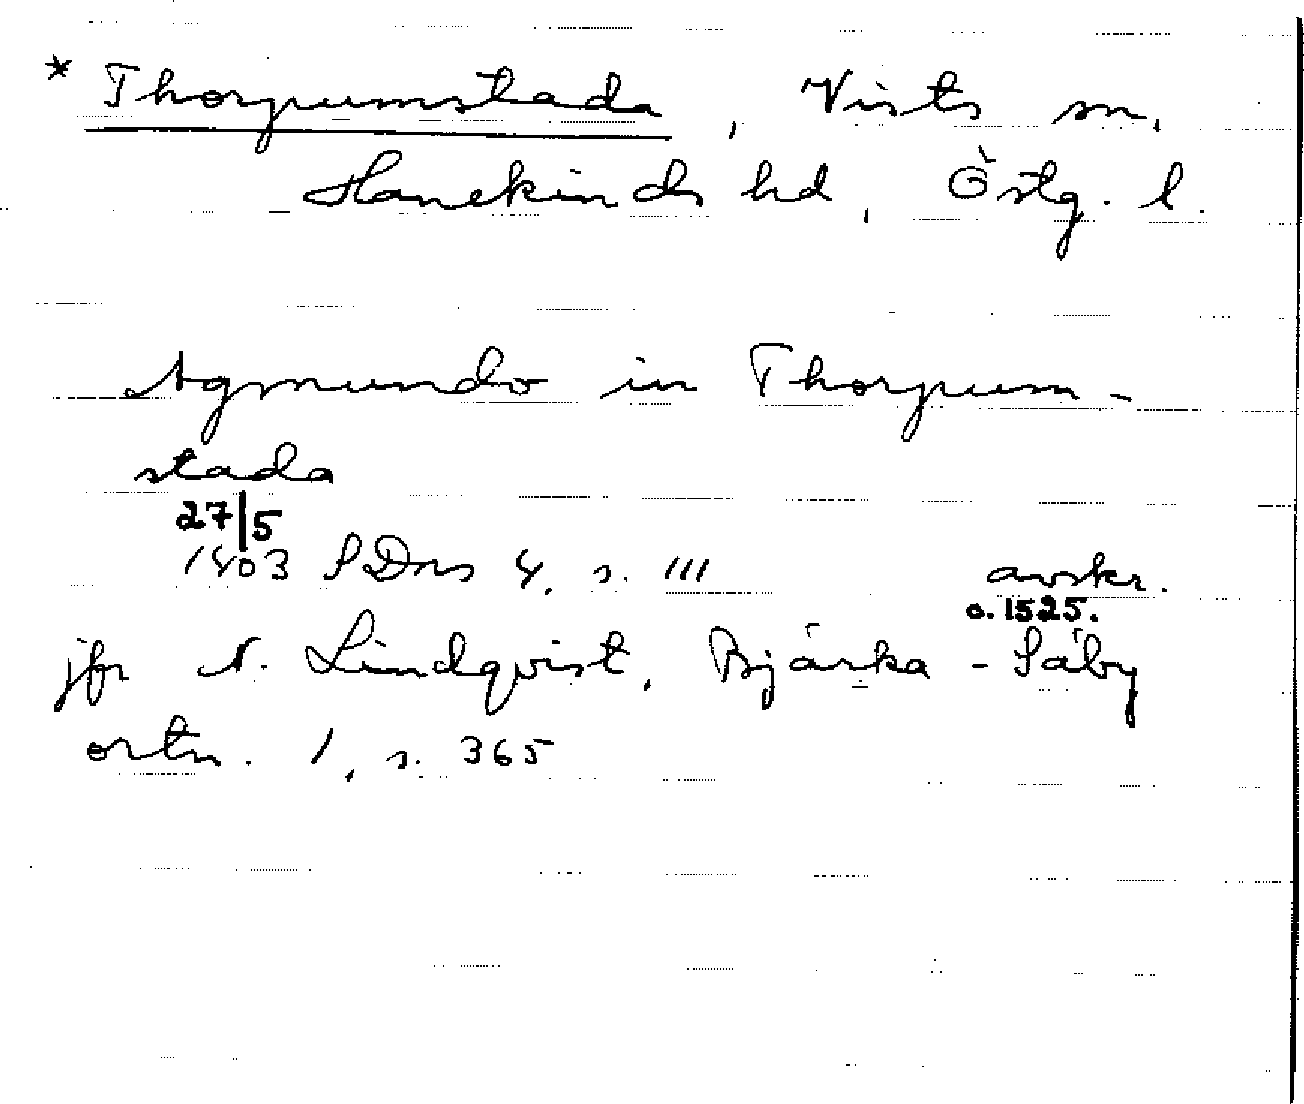 * Thorpumstada, Vists sn,
Hanekinds hd, Östg. l.
Agmundo in Thorpum-
stada
27/5
1403 SDns 4, s. 111 avskr.
c. 1525.
jfr N. Lindqvist, Bjärka-Säby
ortn. 1, s. 365